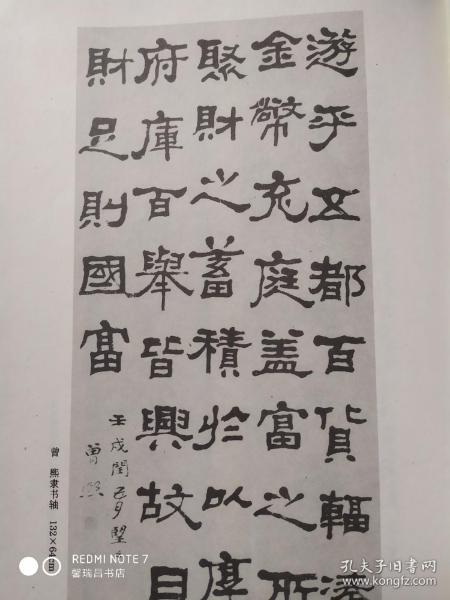 遊乎五都百貨輻湊
金幣充庭盖富之所
聚財之蓄積於以厚
府庫百舉皆興故
財足則國富
壬戌閏五月
曾熙
曾 熙隶书轴 132×64cm
REDMI NOTE 7
馨瑞昌书店
孔夫子旧书网
kongfz.com